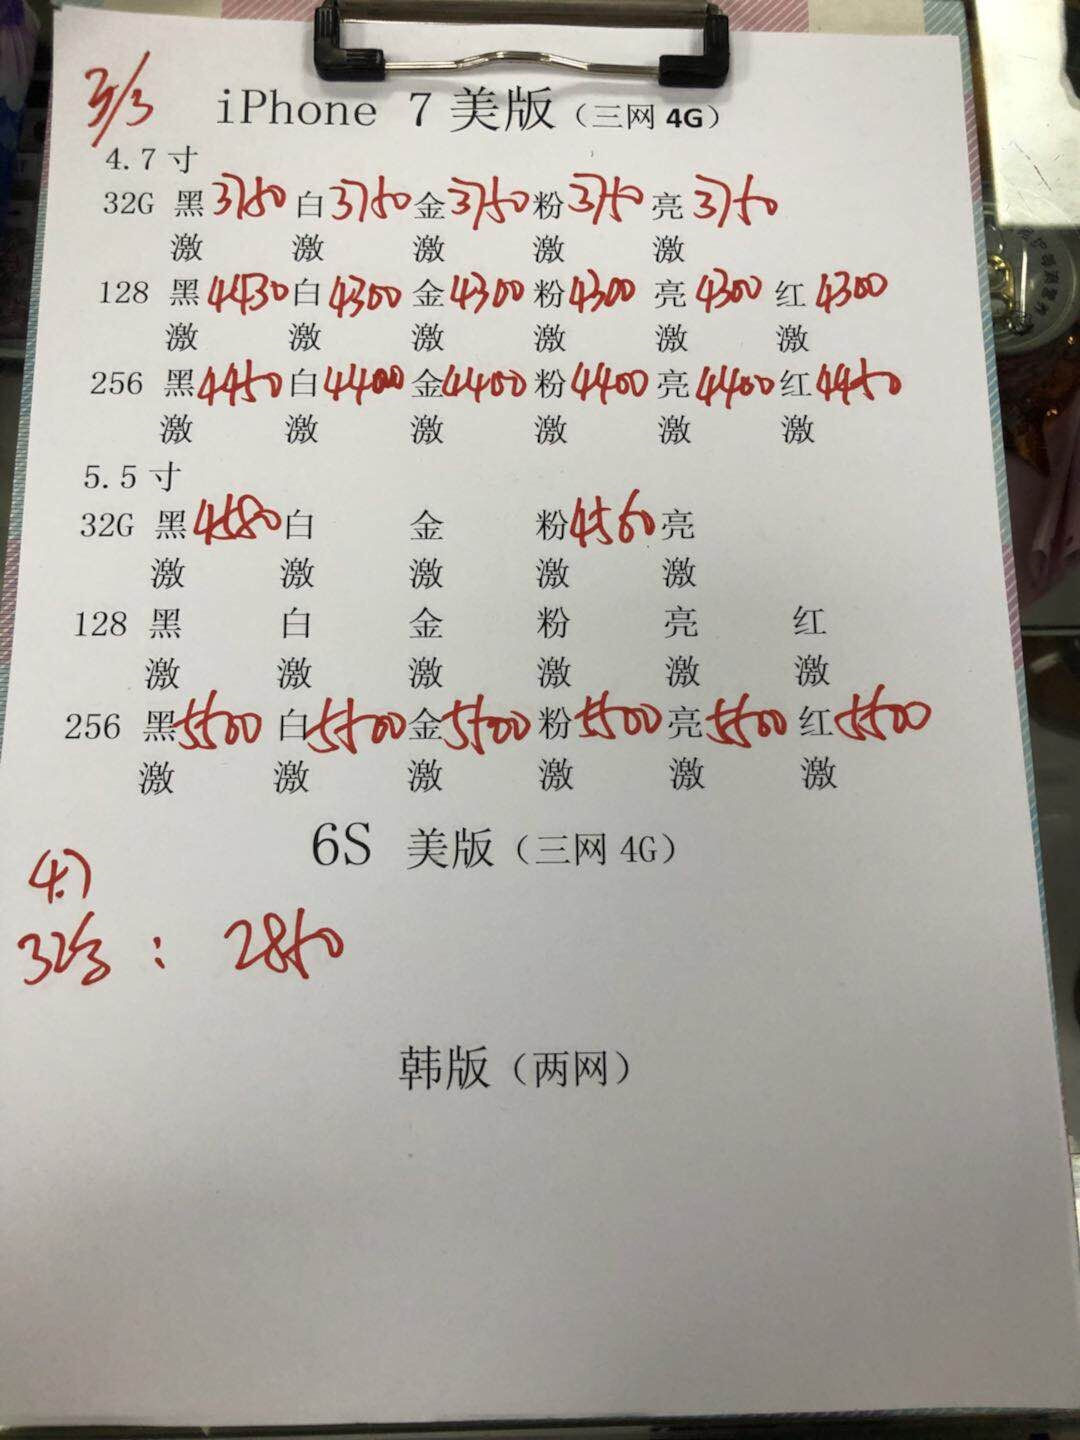 3/3 iPhone 7 美版（三网 4G）
4.7 寸
32G 黑 3780 白 3750 金 3750 粉 3750 亮 3750
激 激 激 激 激
128 黑 4430 白 4300 金 4300 粉 4300 亮 4300 红 4300
激 激 激 激 激 激
256 黑 4450 白 4400 金 4400 粉 4400 亮 4400 红 4450
激 激 激 激 激 激
5.5 寸
32G 黑 4580 白 金 粉 4560 亮
激 激 激 激 激
128 黑 白 金 粉 亮 红
激 激 激 激 激 激
256 黑 5500 白 5500 金 5500 粉 5500 亮 5500 红 5500
激 激 激 激 激 激
6S 美版（三网 4G）
4.7
32G : 2850
韩版（两网）